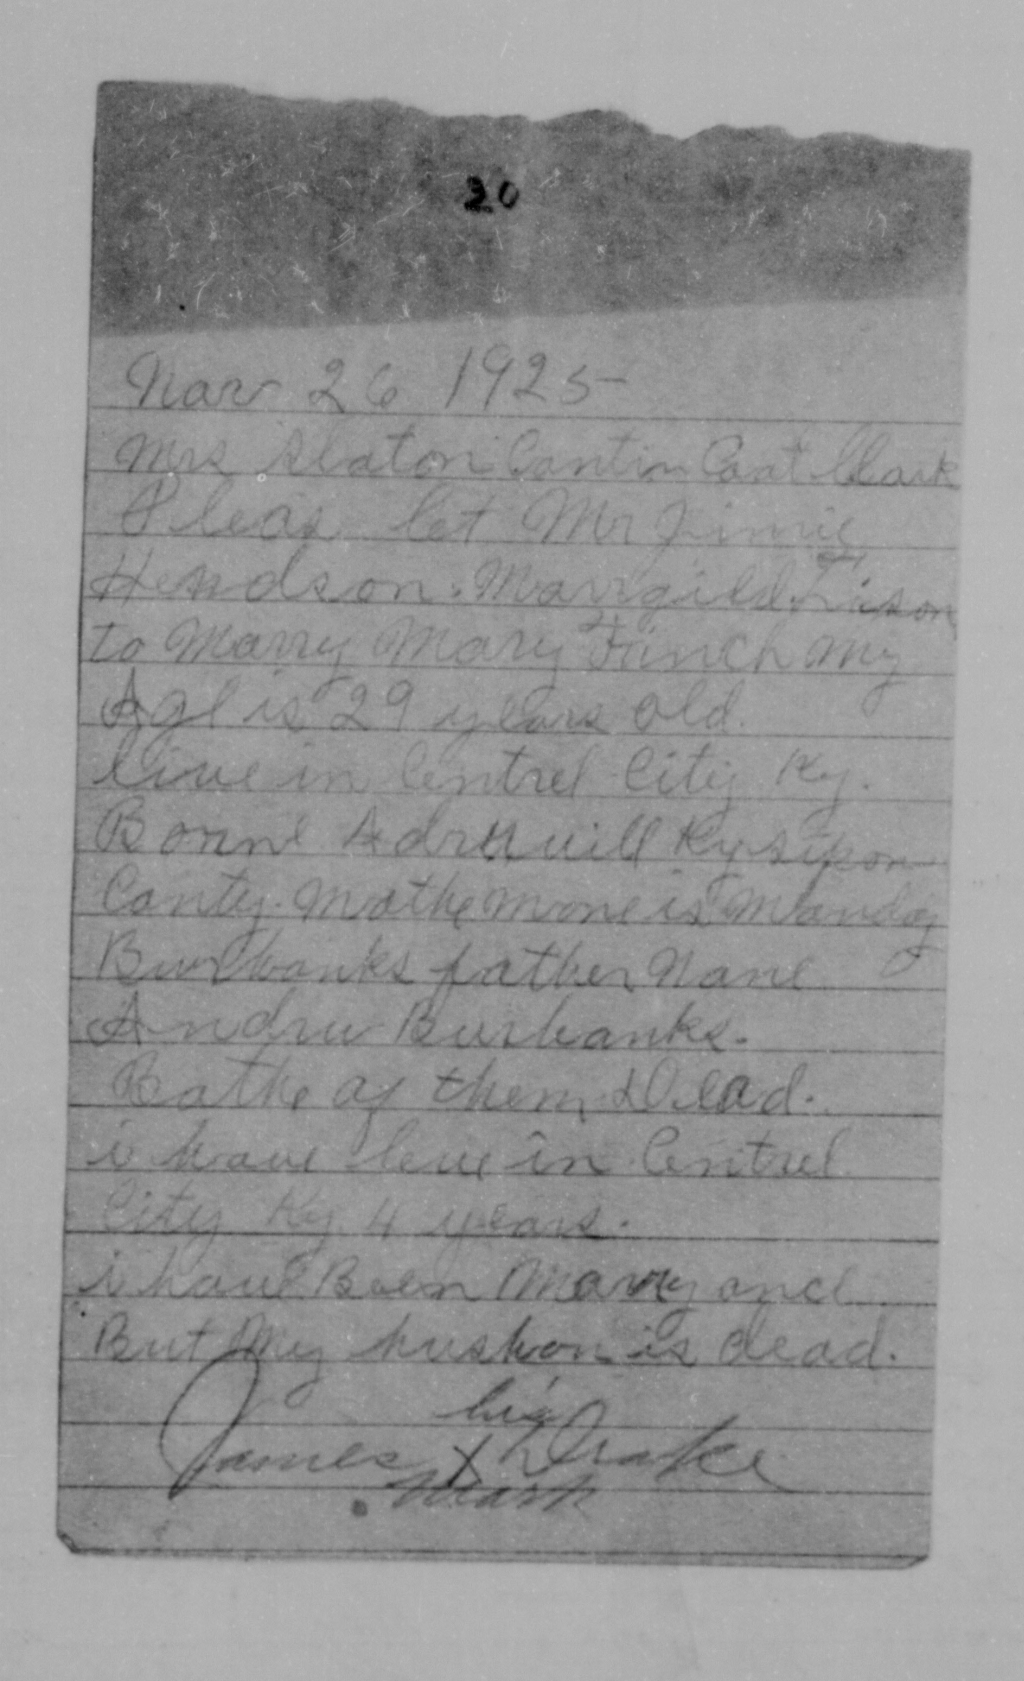 20
Nov 26 1925
Mrs Slaton Contin Coat Clark
Pleas let Mr Jimie
Hendson. Marrgild Lison
to Marry Mary Finch My
Age is 29 years old.
live in Centrel City Ky.
Borne Adruvill Ky sipson
Conty. Mothe mone is Mandy
Burbanks father Name
Andru Burbanks.
Bothe of them Dead.
i have leve in Centrel
City Ky 4 years.
i have Been Marry once
But My huskon is dead.
his
James X Drake
Mark